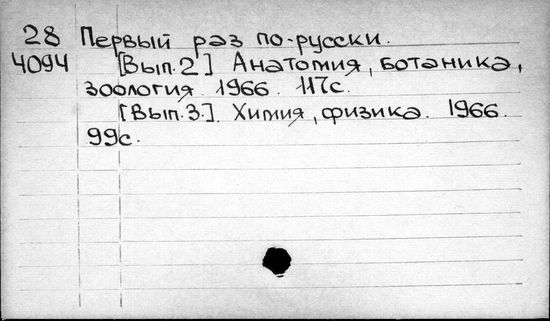 28 Первый раз по-русски.
4094 [Вып.2] Анатомия, ботаника,
зоология. 1966. 117с.
[Вып.3.]. Химия, физика. 1966.
99с.